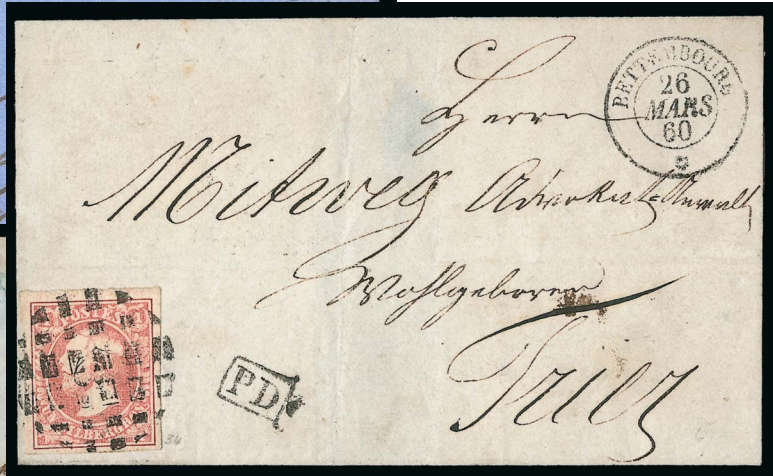 BETTEMBOURG
26
MARS
60
Herrn
Mitweg Advokat=Anwalt
Wohlgeboren
Trier
PD